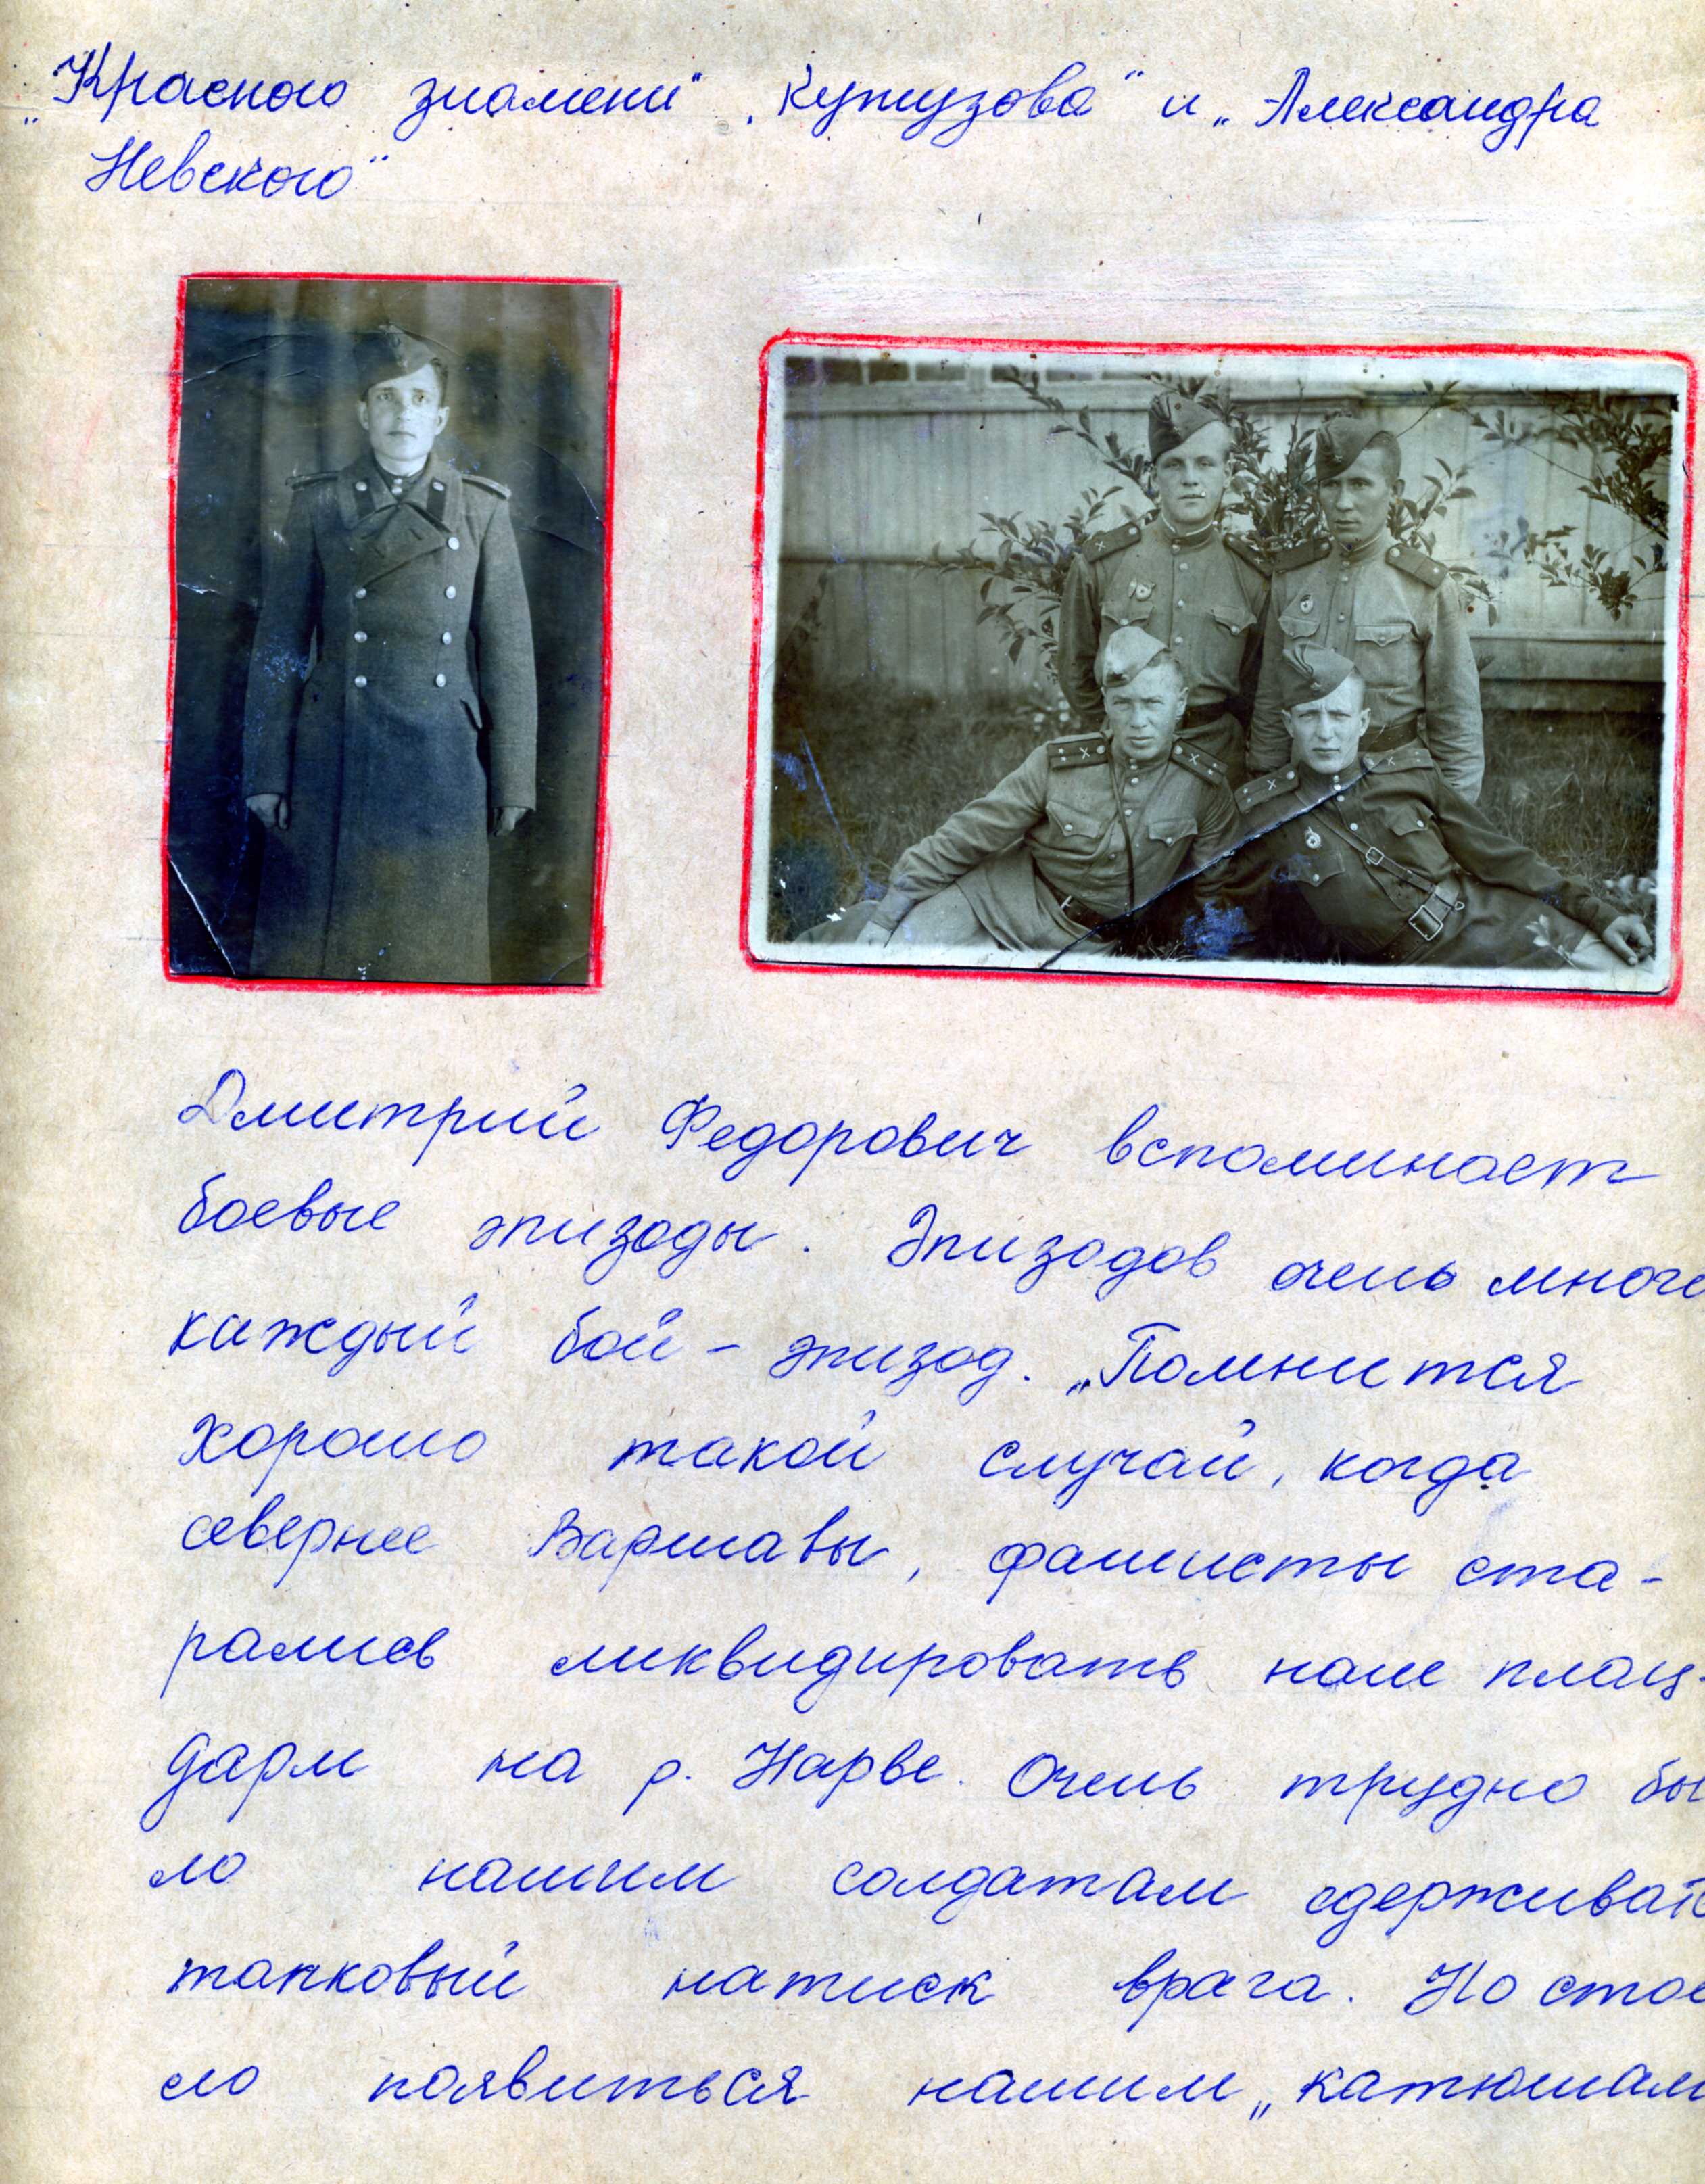 „Красного знамени" „Кутузова" и „Александра
Невского"
Дмитрий Федорович вспоминает
боевые эпизоды. Эпизодов очень много
каждый бой – эпизод. „Помнится
хорошо такой случай, когда
севернее Варшавы, фашисты ста-
рались ликвидировать наш плац-
дарм на р. Нарве. Очень трудно бы
ло нашим солдатам сдерживать
танковый натиск врага. Но стои
ло появиться нашим „катюшам